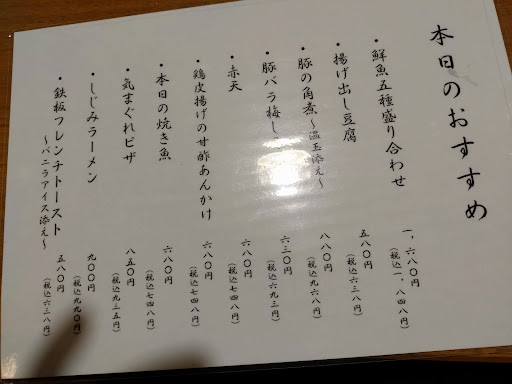 本日のおすすめ
・鮮魚五種盛り合わせ 一,六八〇円
(税込一,八四八円)
・揚げ出し豆腐 五八〇円
(税込六三八円)
・豚の角煮～温玉添え～ 八八〇円
(税込九六八円)
・豚バラ梅し 六三〇円
(税込六九三円)
・赤天 六八〇円
(税込七四八円)
・鶏皮揚げの甘酢あんかけ 六八〇円
(税込七四八円)
・本日の焼き魚 六八〇円
(税込七四八円)
・気まぐれピザ 八五〇円
(税込九三五円)
・しじみラーメン 九〇〇円
(税込九九〇円)
・鉄板フレンチトースト
～バニラアイス添え～ 五八〇円
(税込六三八円)